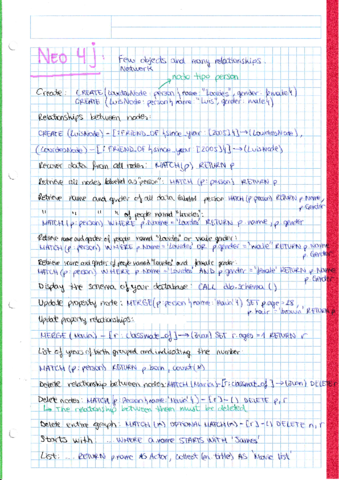 Neo 4j:
Few objects and many relationships.
Network
node type person
Create: CREATE (LourdesNode: person {name: "Lourdes", gender: female})
CREATE (LuisNode: person {name: "Luis", gender: male})
Relationships between nodes:
CREATE (LuisNode) - [:FRIEND_OF {since_year: [2005]}] → (LourdesNode),
(LourdesNode) - [:FRIEND_OF {since_year: [2005]}] → (LuisNode)
Recover data from all nodes: MATCH (p) RETURN p
Retrieve all nodes labeled as "person": MATCH (p: person) RETURN p
Retrieve name and gender of all data labeled person MATCH (p: person) RETURN p.Name,
p.Gender
" " " of people named "lourdes":
MATCH (p: person) WHERE p.Name = "Lourdes" RETURN p.name, p.gender
Retrieve name and gender of people named "lourdes" or male gender:
MATCH (p: person) WHERE p.Name = "Lourdes" OR p.gender = "male" RETURN p.Name
p.Gender
Retrieve name and gender of people named "lourdes" and female gender
MATCH (p: person) WHERE p.Name = "Lourdes" AND p.gender = "female" RETURN p.Name
p.Gender
Display the schema of your database: CALL db.Schema()
Update property node: MERGE (p: person {name: }) SET p.age = 28,
p.hair = "brown" RETURN p
Update property relationships:
MERGE (Mario) - [r: Classmat_of] → (Juan) SET r.ages = 1 RETURN r
List of years of birth grouped and indicating the number
MATCH (p: person) RETURN p.born, count(*)
Delete relationship between nodes: MATCH (Mario) - [r: classmat_of] → (Juan) DELETE r
Delete nodes: MATCH (p: Person {name: }) - [r] - () DELETE p, r
The relationship between them must be deleted
Delete entire graph: MATCH (n) OPTIONAL MATCH (n) - [r] - () DELETE n, r
Starts with: ... WHERE a.name STARTS WITH 'James'
List: ... RETURN p.name AS Actor, collect (m.title) AS 'Movie list'